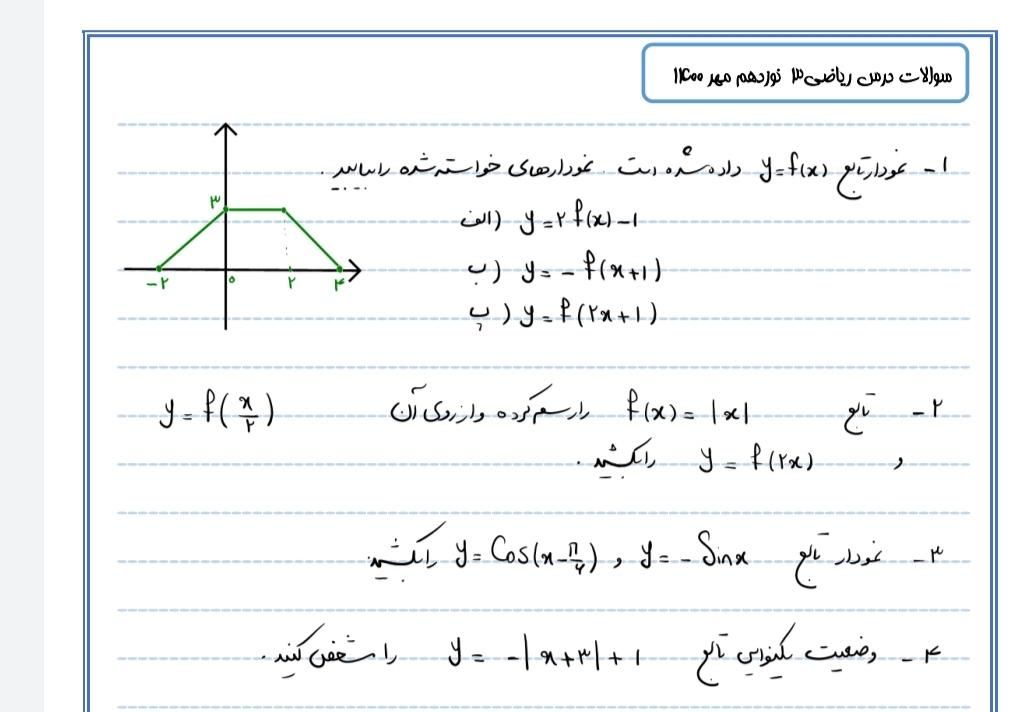 سوالات درس ریاضی ۳ نوزدهم مهر ۱۴۰۰
۱- نمودار تابع y=f(x) داده شده است. نمودارهای خواسته شده را بیابید.
الف) y=۲f(x)-۱
ب) y=-f(x+۱)
پ) y=f(۲x+۱)
۳
-۲ ۰ ۲ ۴
۲- تابع f(x)=|x| را رسم کرده و از روی آن y=f(x/۲)
و y=f(۲x) را بکشید.
۳- نمودار تابع y=-Sinx و y=Cos(x-π/۴) را بکشید
۴- وضعیت یکنوایی تابع y=-|x+۳|+۱ را مشخص کنید.